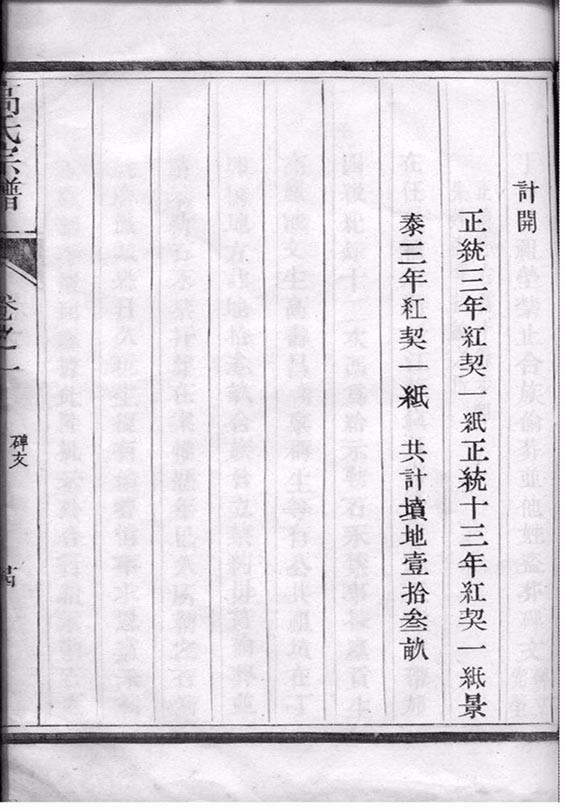 計開
正統三年紅契一紙正統十三年紅契一紙景
泰三年紅契一紙 共計墳地壹拾叁畝
高氏宗譜 卷之一 碑文